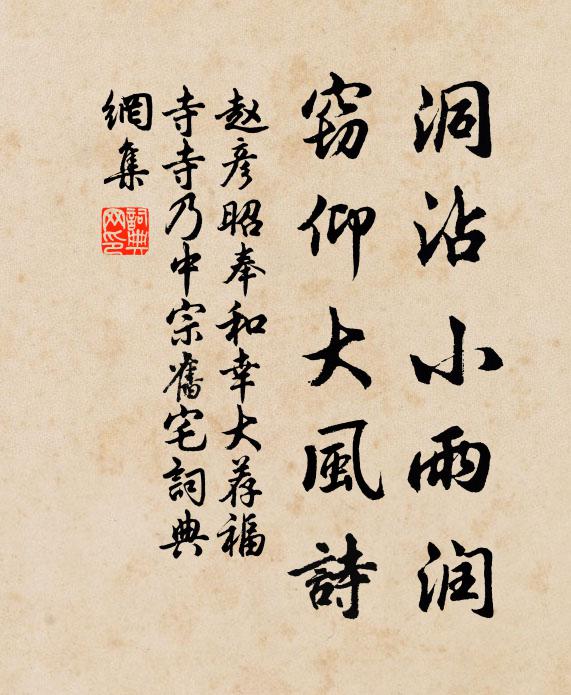 洞沾小雨润
窃仰大風詩
赵彦昭奉和幸大荐福
寺寺乃中宗舊宅詞典
網集
詞典网印